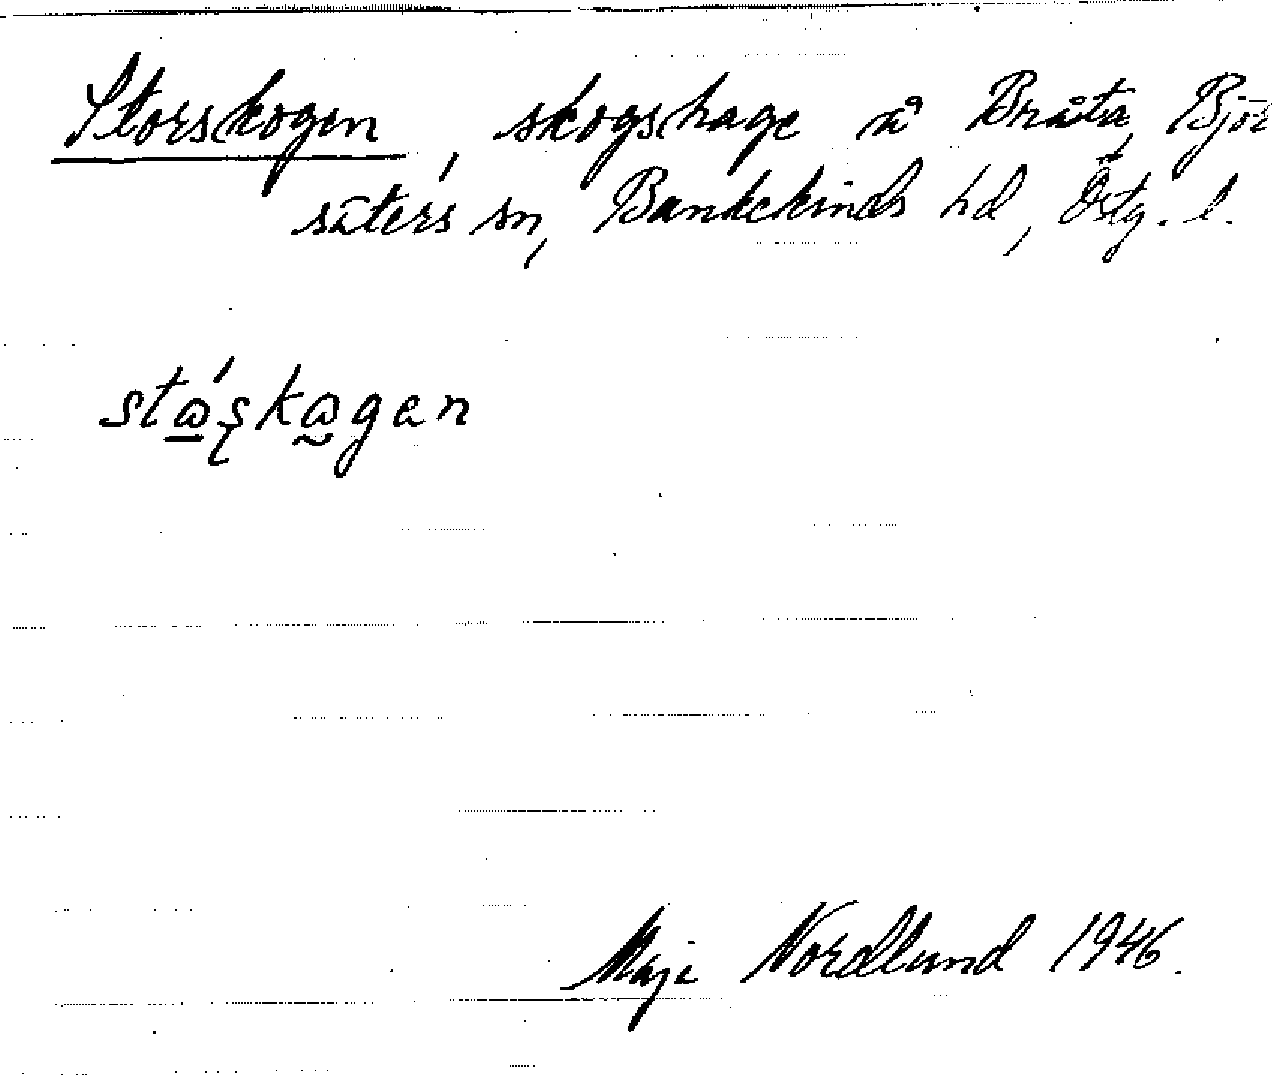 Storskogen, skogshage å Bråta, Björ
säters sn, Bankekinds hd, Östg. l.
Maja Nordlund 1946.